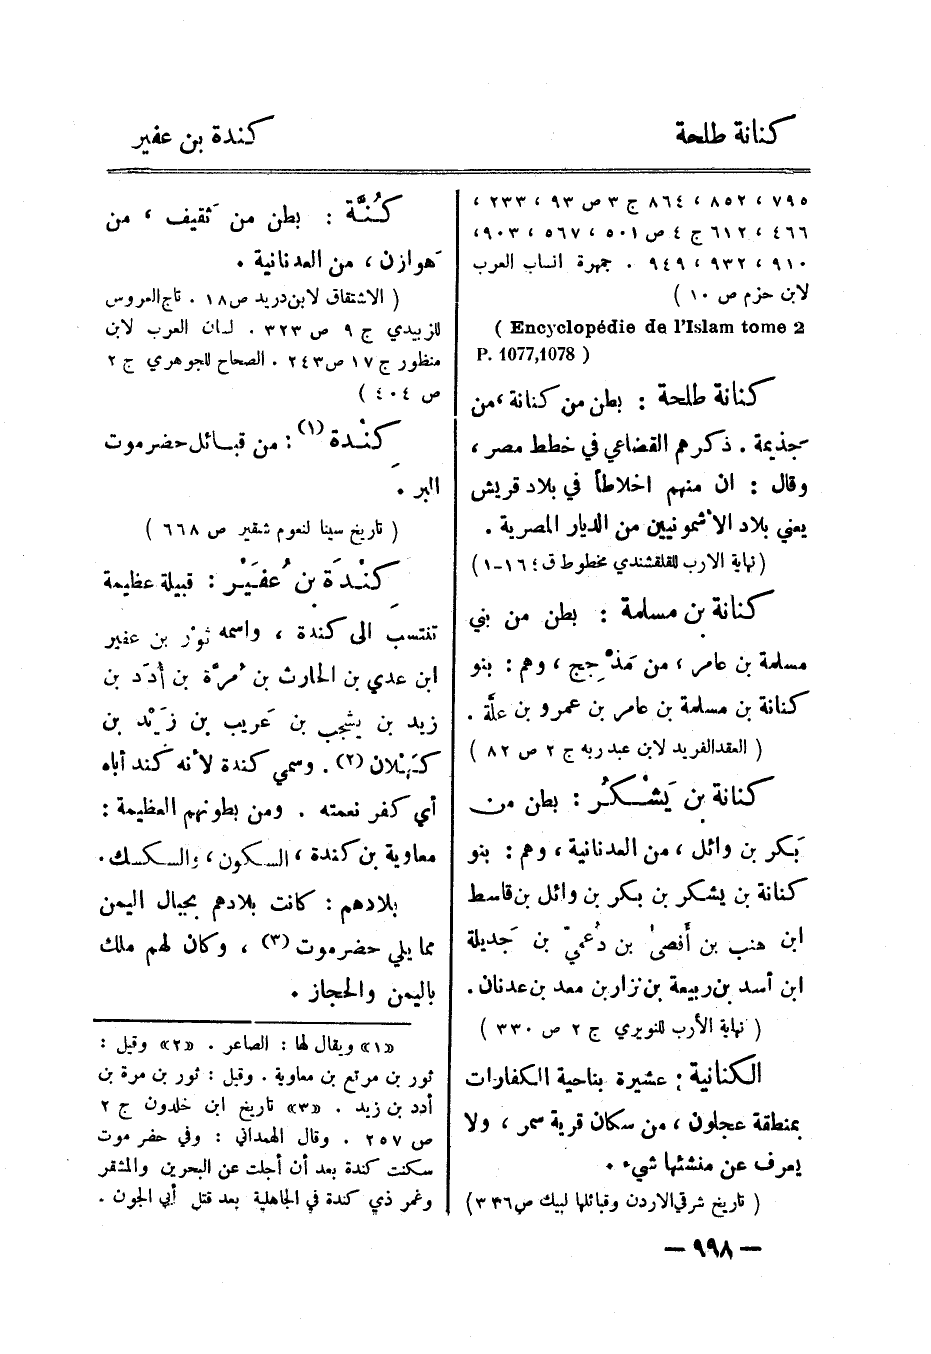 كنانة طلحة
كندة بن عفير
٧٩٥ ، ٨٥٢ ، ٨٦٤ ج ٣ ص ٩٣ ، ٢٣٣ ،
٤٦٦ ، ٦١٢ ج ٤ ص ٥٠١ ، ٥٦٧ ، ٩٠٣،
٩١٠ ، ٩٣٢ ، ٩٤٩ . جمهرة انساب العرب
لابن حزم ص ١٠ )
( Encyclopédie de l'Islam tome 2
P. 1077,1078 )
كنانة طلحة : بطن من كنانة ،من
جذيمة . ذكرهم القضاعي في خطط مصر ،
وقال : ان منهم اخلاطاً في بلاد قريش
يعني بلاد الأشمونيين من الديار المصرية .
(نهاية الارب للقلقشندي مخطوط ق ١٦٤-١)
كنانة بن مسلمة : بطن من بني
مسلمة بن عامر ، من مَذْحِج ، وهم : بنو
كنانة بن مسلمة بن عامر بن عمرو بن علَّة .
( العقد الفريد لابن عبد ربه ج ٢ ص ٨٢ )
كنانة بن يَشْكُر : بطن من
بَكر بن وائل ، من العدنانية ، وهم : بنو
كنانة بن يشكر بن بكر بن وائل بن قاسط
ابن هنب بن أَفصى بن دُعميّ بن جَديلة
ابن أسد بن ربيعة بن نزار بن معد بن عدنان.
( نهاية الأرب للنويري ج ٢ ص ٣٣٠ )
الكنانية : عشيرة بناحية الكفارات
بمنطقة عجلون ، من سكان قرية سمر ، ولا
يعرف عن منشئها شيء .
( تاريخ شرقي الاردن وقبائلها لبيك ص ٣٣٦)
كُنَّة : بطن من ثَقيف ، من
هَوازن ، من العدنانية .
( الاشتقاق لابن دريد ص ١٨ . تاج العروس
للزبيدي ج ٩ ص ٣٢٣ . لسان العرب لابن
منظور ج ١٧ ص ٢٤٣ . الصحاح للجوهري ج ٢
ص ٤٠٤ )
كِنْدة (١) : من قبائل حضرموت
البر .
( تاريخ سينا لنعوم شقير ص ٦٦٨ )
كِنْدَة بن عُفَيْر : قبيلة عظيمة
تنتسب الى كندة ، واسمه ثَوْر بن عفير
ابن عدي بن الحارث بن مُرَّة بن أُدَد بن
زيد بن يشجب بن عَريب بن زَيْد بن
كَهْلان (٢) . وسمي كندة لأنه كند أباه
أي كفر نعمته . ومن بطونهم العظيمة :
معاوية بن كندة ، السكون ، والسكسك.
بلادهم : كانت بلادهم بجبال اليمن
مما يلي حضرموت (٣) ، وكان لهم ملك
باليمن والحجاز .
«١» ويقال لها : الصاعر . «٢» وقيل :
ثور بن مرتع بن معاوية . وقيل : ثور بن مرة بن
أدد بن زيد . «٣» تاريخ ابن خلدون ج ٢
ص ٢٥٧ . وقال الهمداني : وفي حضر موت
سكنت كندة بعد أن أجلت عن البحرين والمشقر
وغمر ذي كندة في الجاهلية بعد قتل أبي الجون .
— ٩٩٨ —